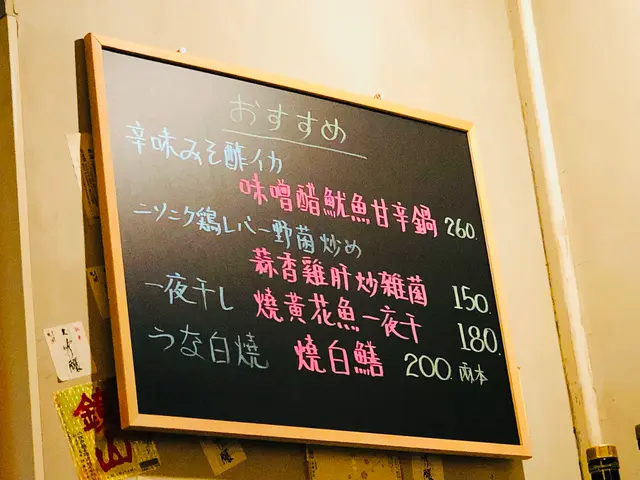 おすすめ
辛味みそ酢イカ
味噌醋魷魚甘辛鍋 260.
ニンニク鶏レバー野菌炒め
蒜香雞肝炒雜菌 150.
一夜干し 燒黃花魚一夜干 180.
うな白焼 燒白鱔 200. 兩本
鏡山